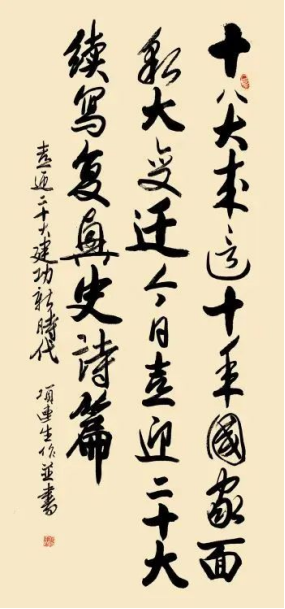 十八大来這十年國家面
貌大变迁今日喜迎二十大
續寫复興史詩篇
喜迎二十大建功新時代 項連生作並書